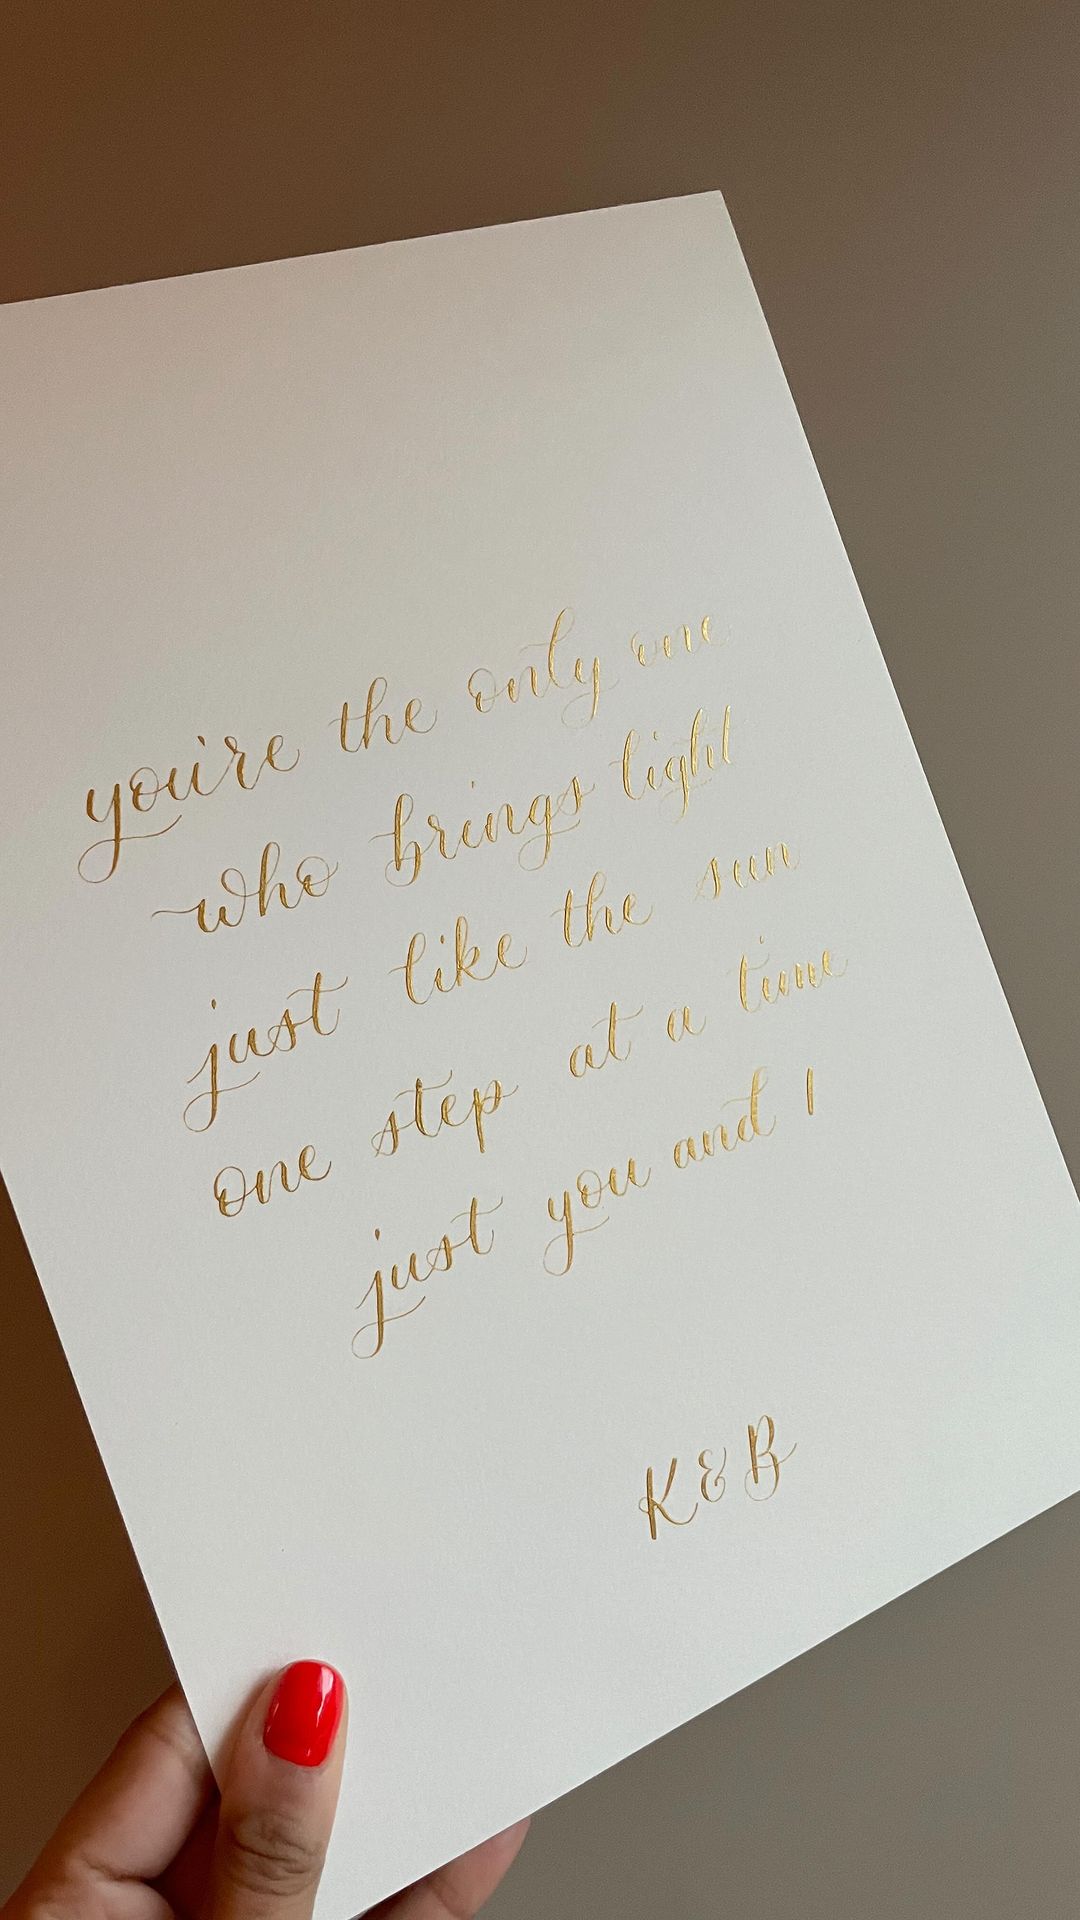 you're the only one
who brings light
just like the sun
one step at a time
just you and I
K & B